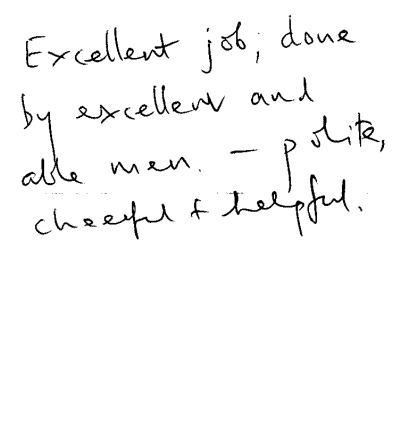 Excellent job; done
by excellent and
able men. - polite,
cheerful + helpful.